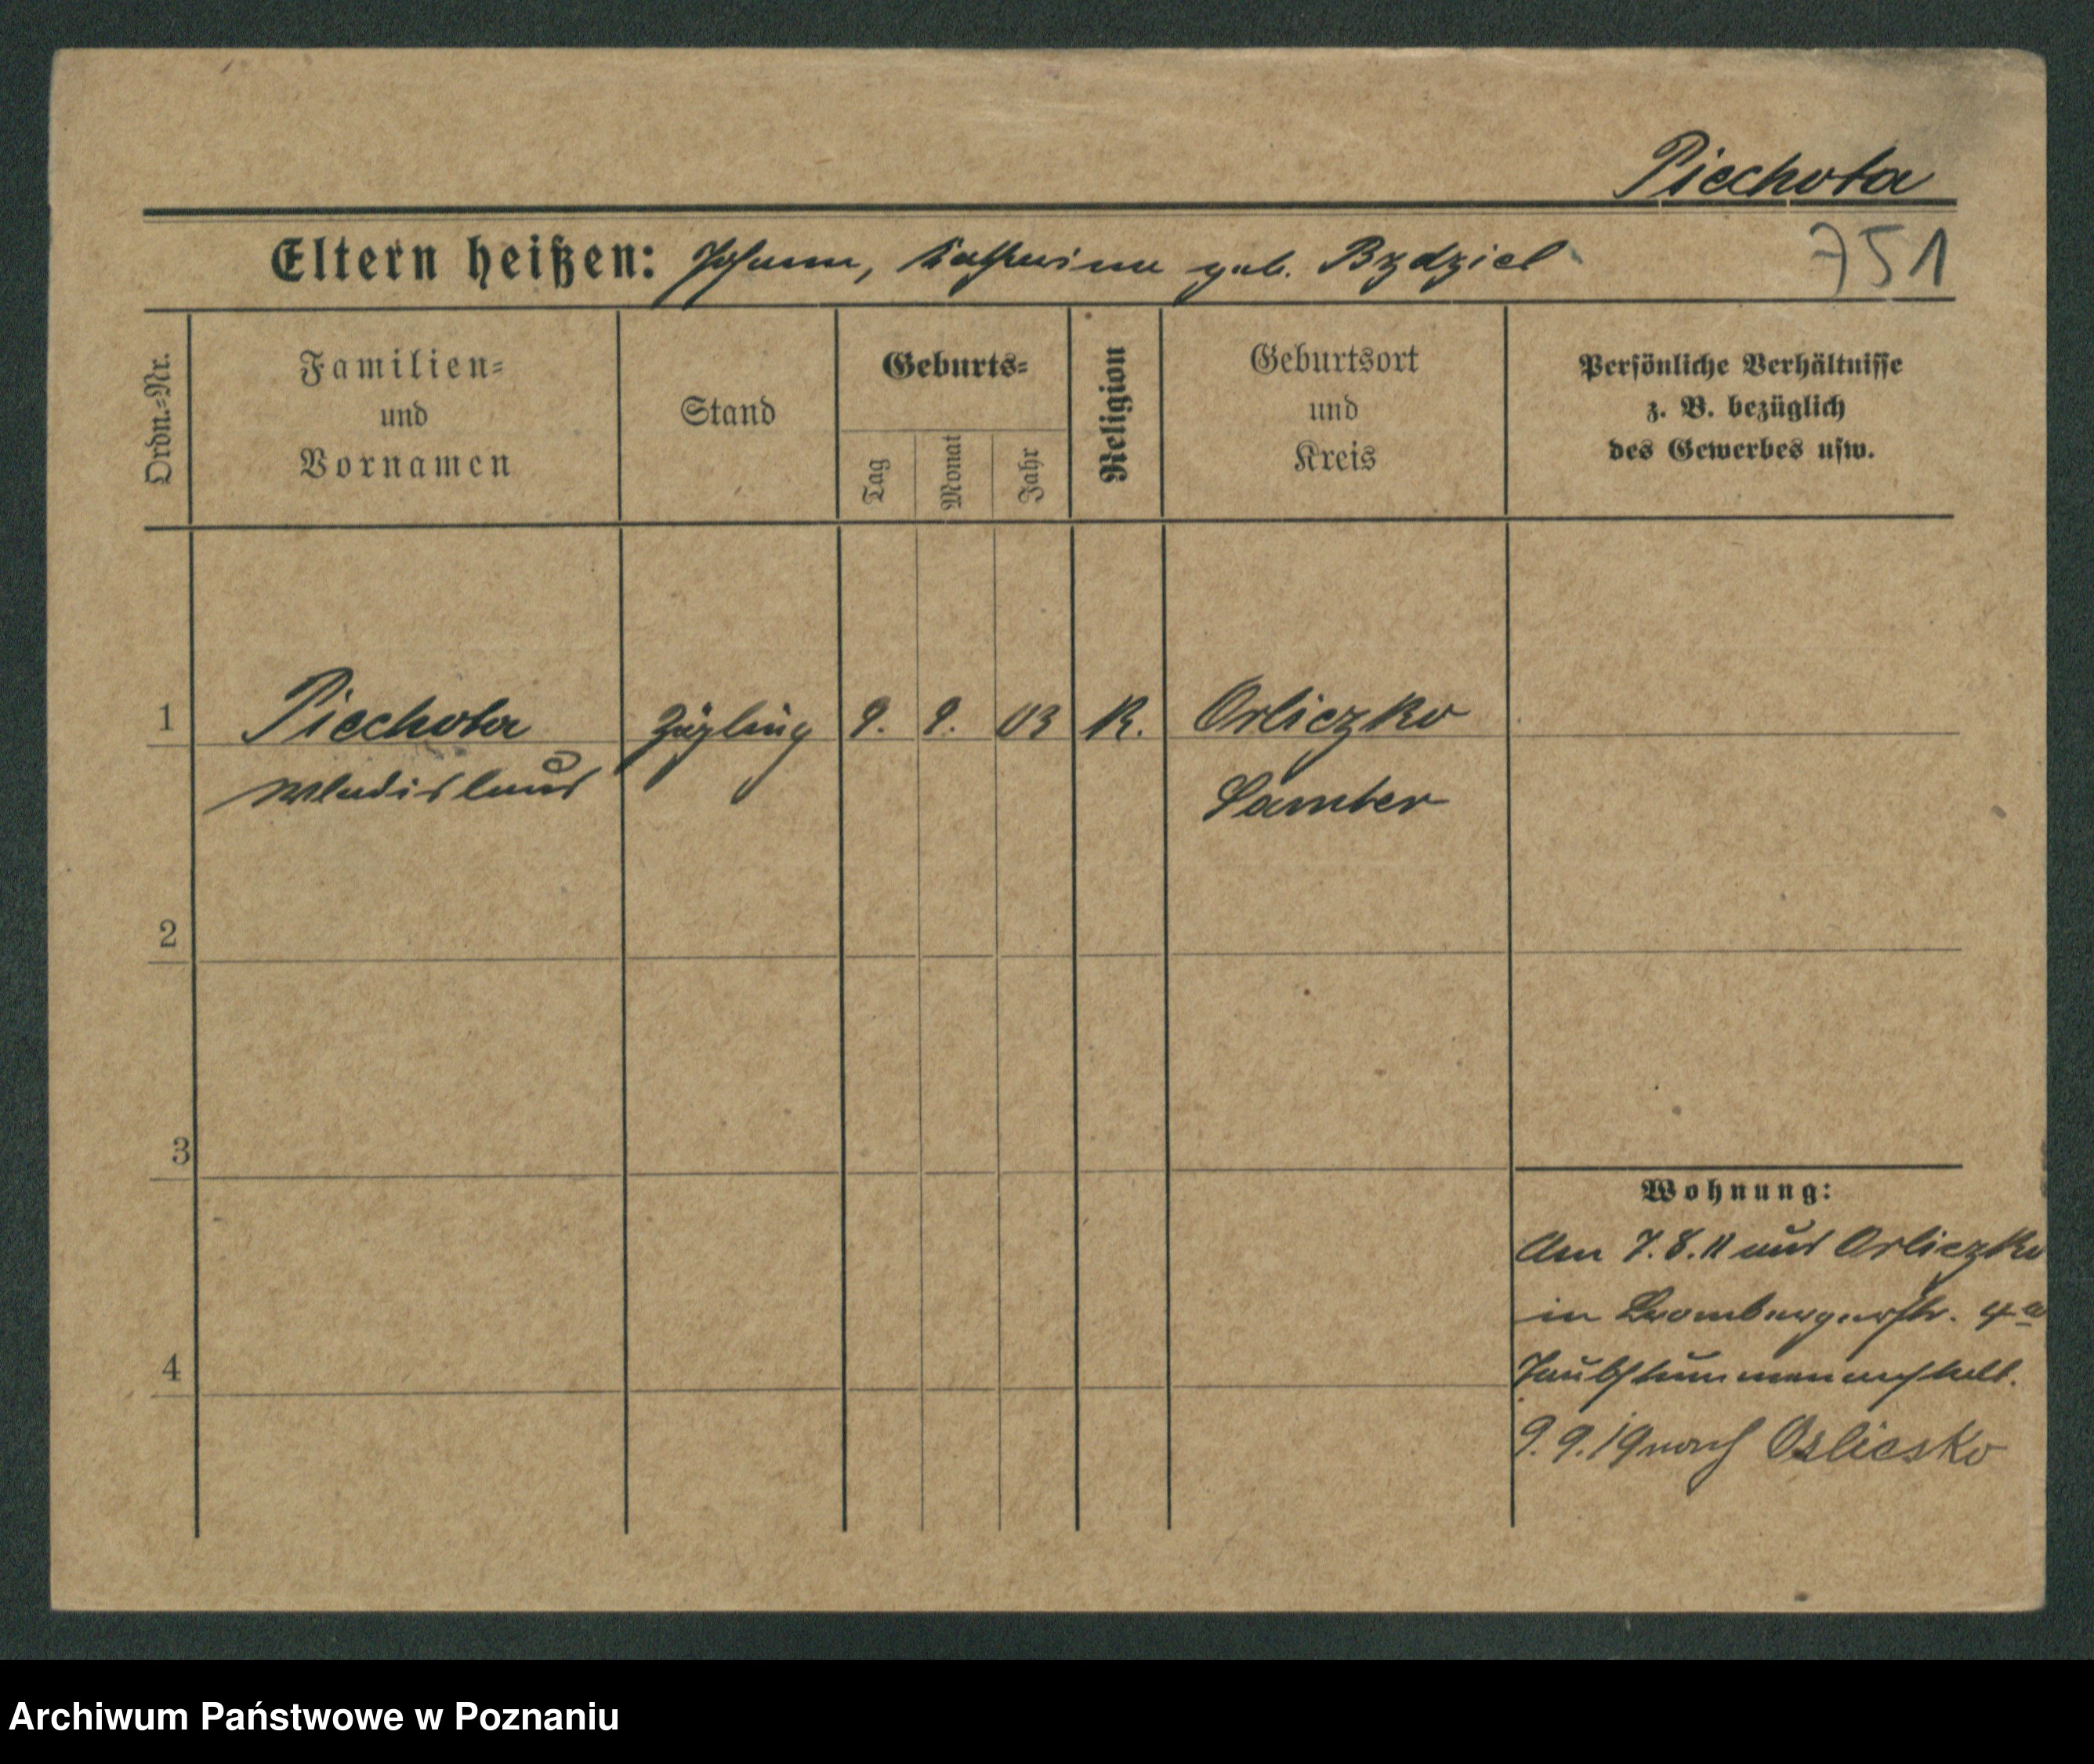 Piechota
Eltern heißen: Johann, Katharina geb. Bzdziel
751
Ordn.-Nr.
Familien-
und
Vornamen
Stand
Geburts-
Tag
Monat
Jahr
Religion
Geburtsort
und
Kreis
Persönliche Verhältnisse
z. B. bezüglich
des Gewerbes usw.
1 Piechota Zögling 9. 9. 03 K. Orliczko
Wladislaus Samter
2
3
Wohnung:
Am 7.8.11 aus Orliczko
in Brombergerstr. 4a
4
Taubstummenanstalt.
9.9.19 nach Orlicsko
Archiwum Państwowe w Poznaniu